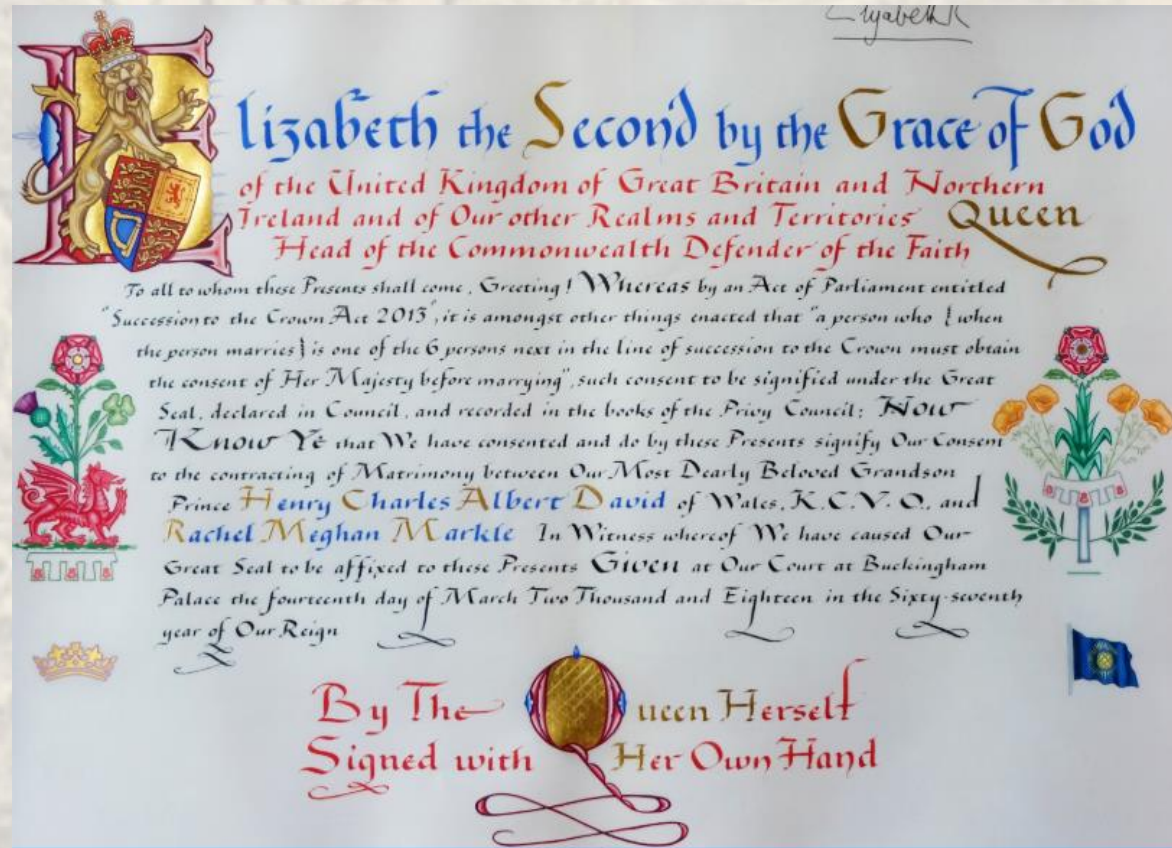 Elizabeth R
Elizabeth the Second by the Grace of God
of the United Kingdom of Great Britain and Northern
Ireland and of Our other Realms and Territories Queen
Head of the Commonwealth Defender of the Faith
To all to whom these Presents shall come, Greeting! Whereas by an Act of Parliament entitled
"Succession to the Crown Act 2013", it is amongst other things enacted that "a person who {when
the person marries} is one of the 6 persons next in the line of succession to the Crown must obtain
the consent of Her Majesty before marrying", such consent to be signified under the Great
Seal, declared in Council, and recorded in the books of the Privy Council; Now
Know Ye that We have consented and do by these Presents signify Our Consent
to the contracting of Matrimony between Our Most Dearly Beloved Grandson
Prince Henry Charles Albert David of Wales, K.C.V.O., and
Rachel Meghan Markle In Witness whereof We have caused Our
Great Seal to be affixed to these Presents Given at Our Court at Buckingham
Palace the fourteenth day of March Two Thousand and Eighteen in the Sixty-seventh
year of Our Reign
By The Queen Herself
Signed with Her Own Hand